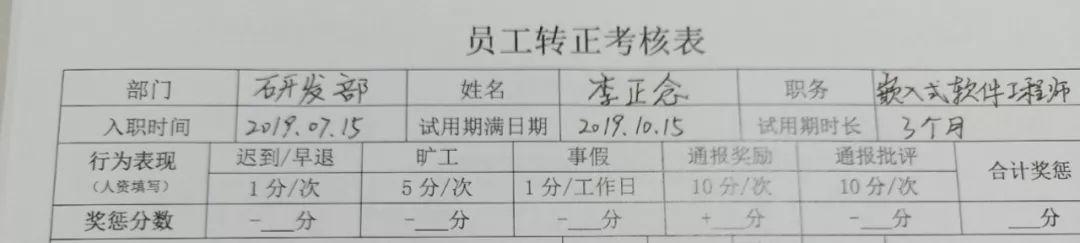 员工转正考核表
部门 研发部 姓名 李正念 职务 嵌入式软件工程师
入职时间 2019.07.15 试用期满日期 2019.10.15 试用期时长 3个月
行为表现 迟到/早退 旷工 事假 通报奖励 通报批评 合计奖惩
(人资填写) 1分/次 5分/次 1分/工作日 10分/次 10分/次
奖惩分数 -___分 -___分 -___分 +___分 -___分 ___分